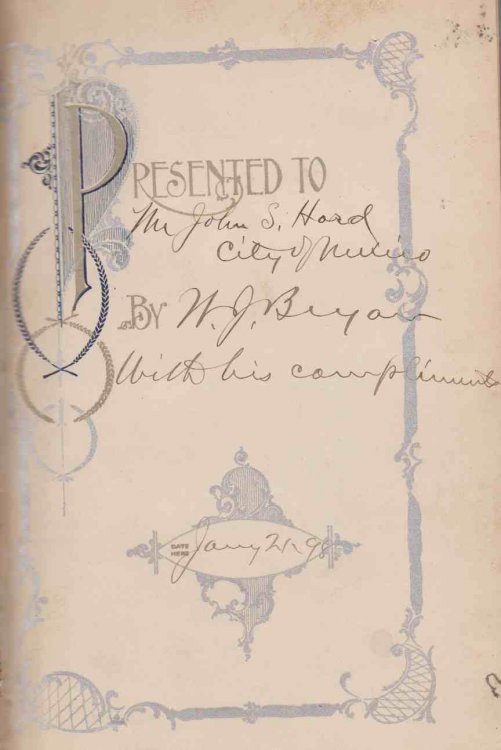 PRESENTED TO
Mr John S. Hord
City of Mexico
BY W. J. Bryan
With his compliments
DATE HERE Jany 21, 98